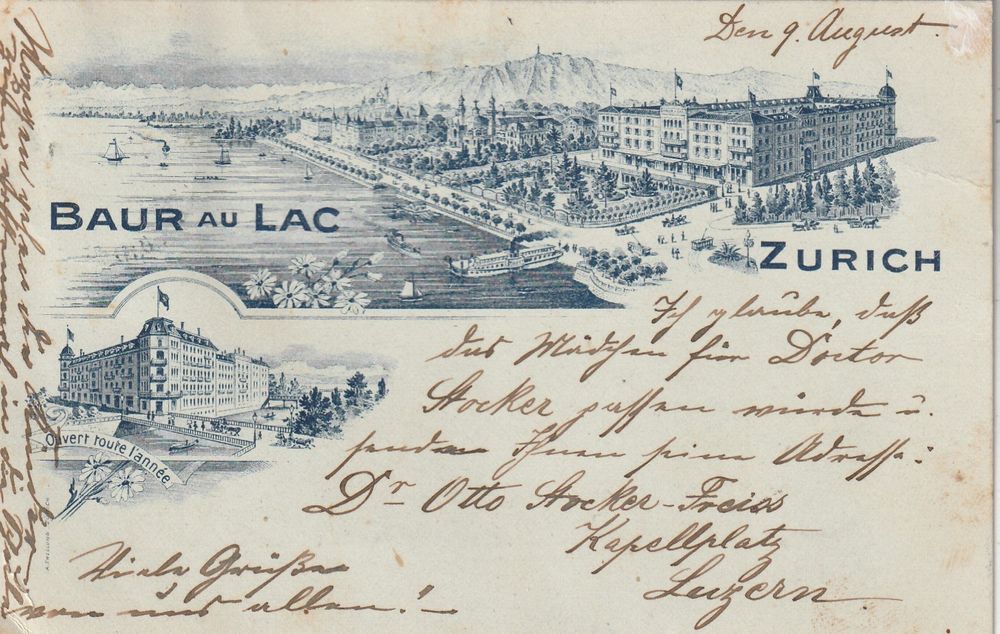 Den 9. August.
BAUR AU LAC
ZURICH
Ich glaube, daß
das Mädchen für Doctor
Stocker passen würde u.
sende Ihnen seine Adresse:
Dr Otto Stocker-Freiss
Kapellplatz
Luzern
Ouvert toute l'année
Viele Grüße
von uns allen!
Morgen